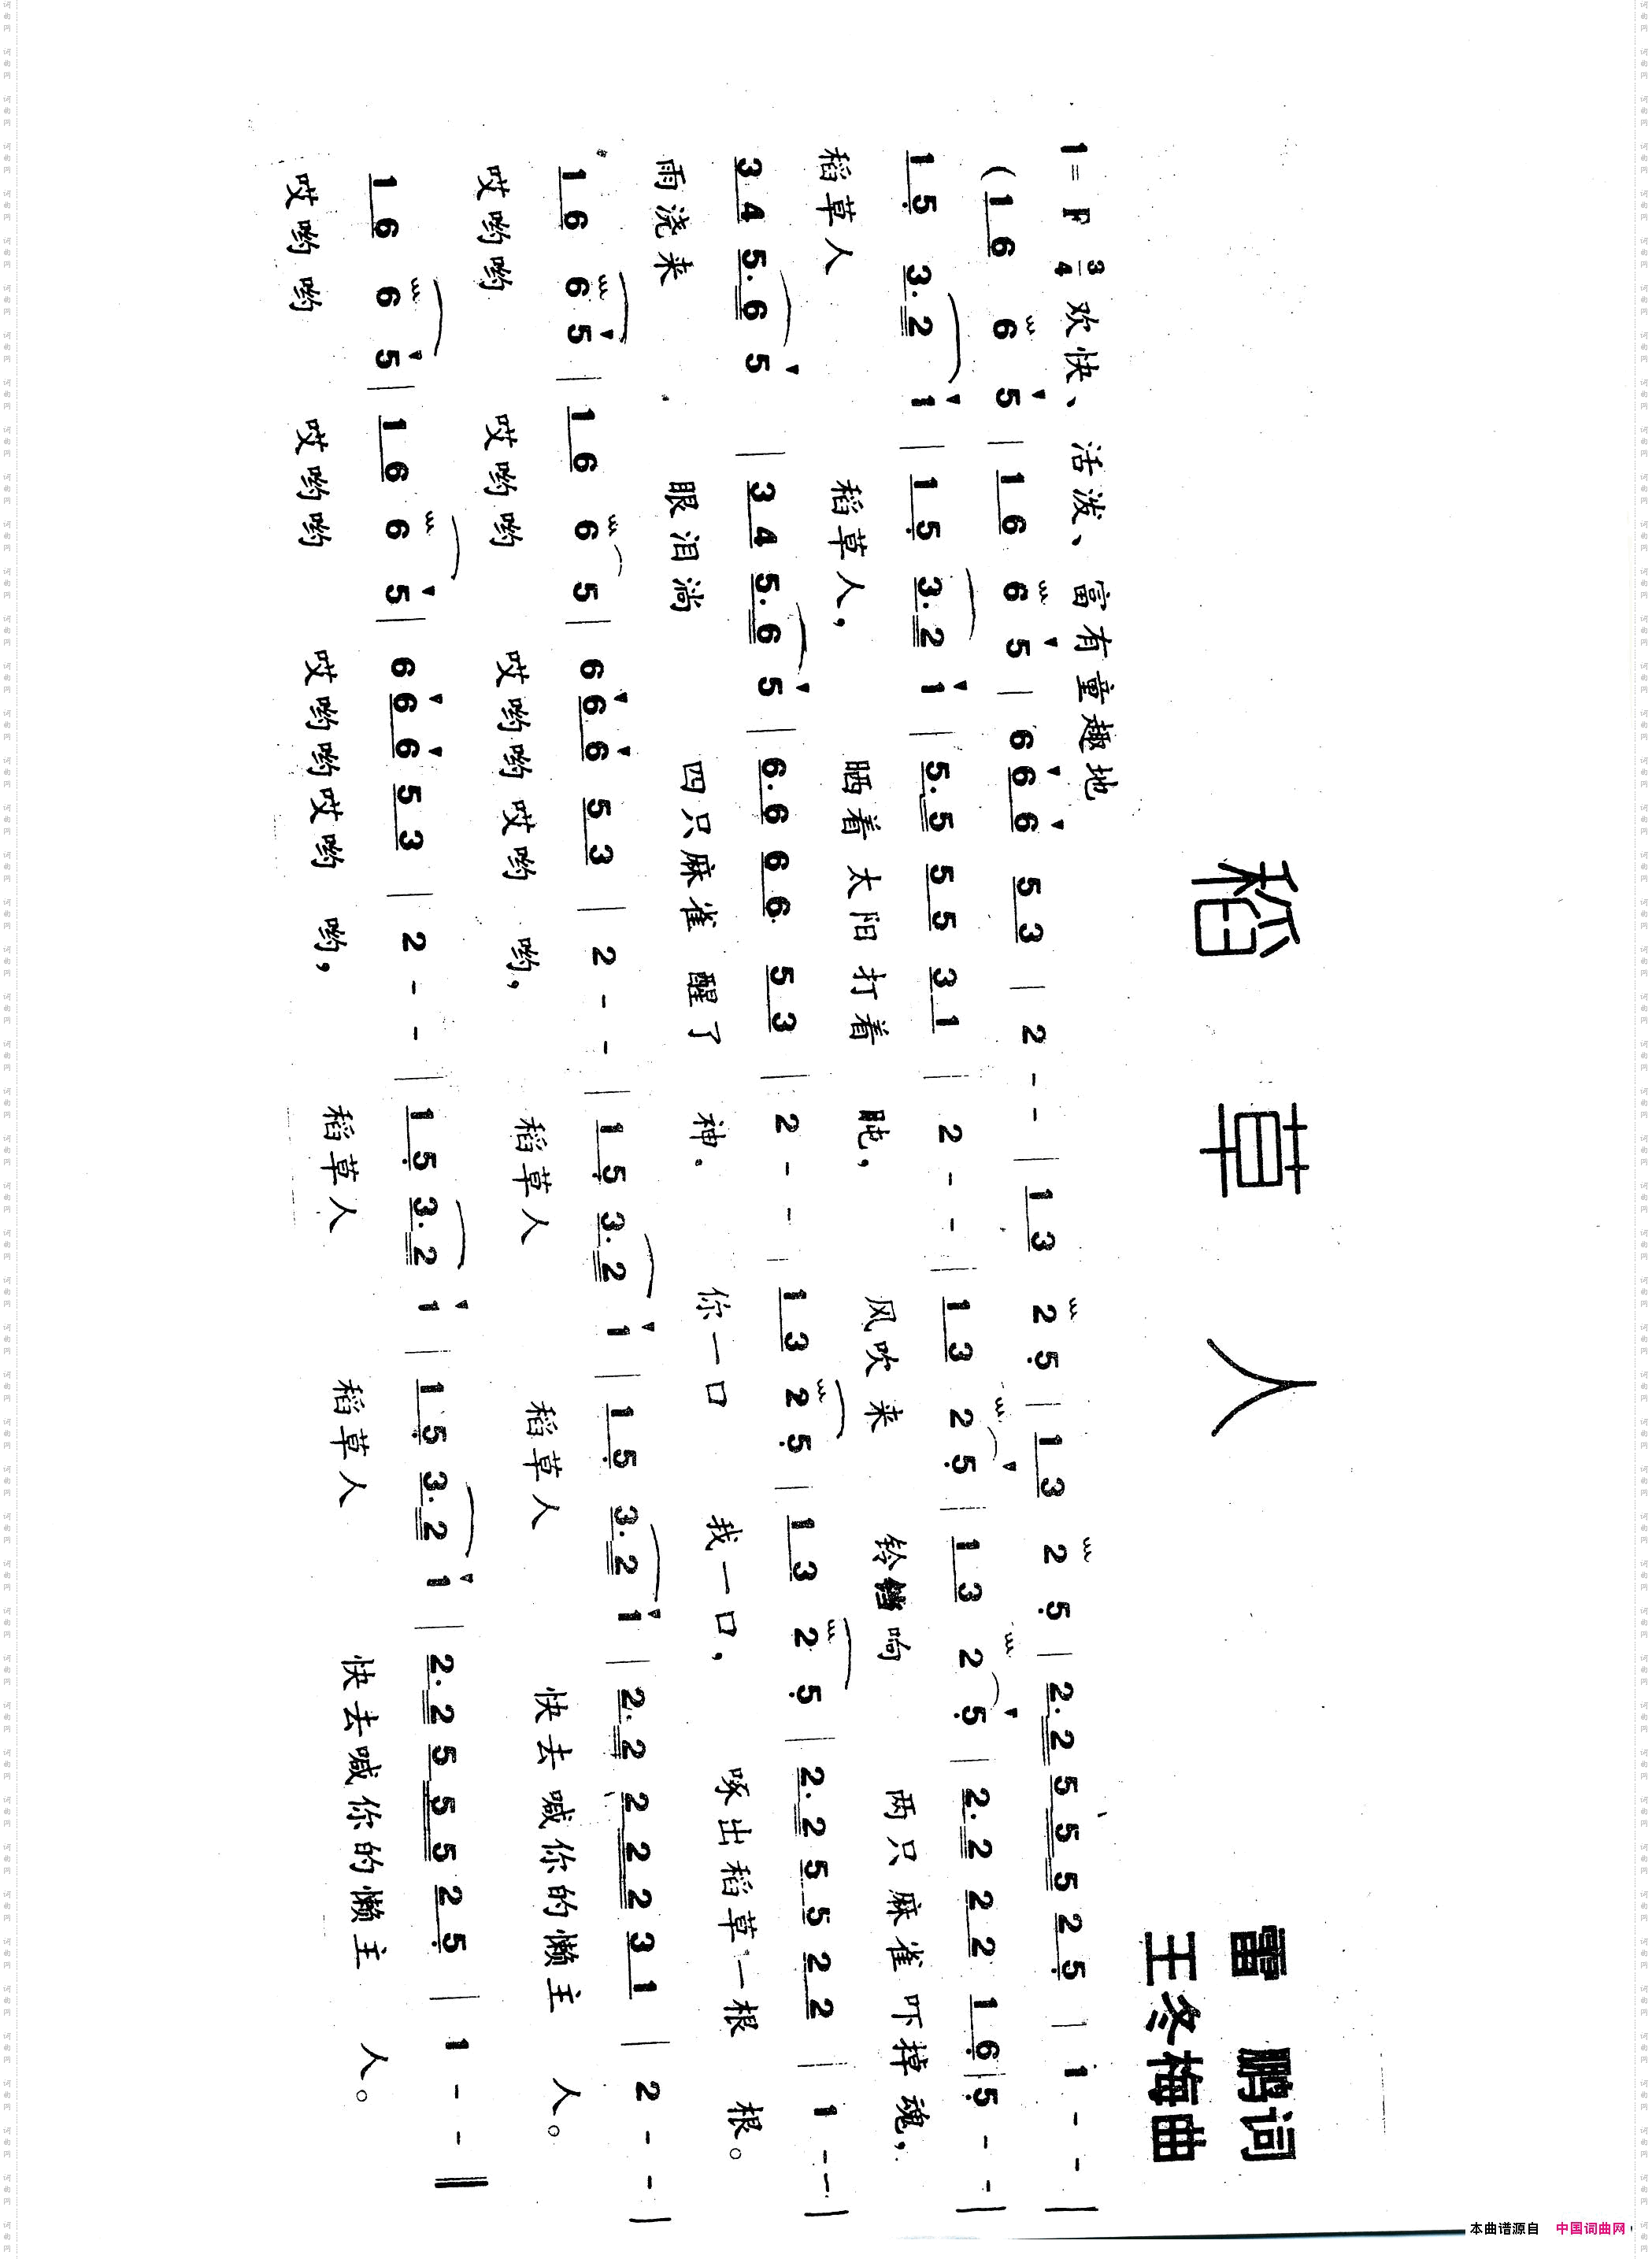 稻草人
雷鹏词
王冬梅曲
1= F 3/4 欢快、活泼、富有童趣地
(1 6 6 5 | 1 6 6 5 | 6 6 6 5 3 | 2 - - | 1 3 2 5̣ | 1 3 2 5̣ | 2. 2 5 5 5 2 5̣ | 1 - - |
1 5̣ 3. 2 1 | 1 5̣ 3. 2 1 | 5. 5 5 5 3 1 | 2 - - | 1 3 2 5̣ | 1 3 2 5̣ | 2. 2 2 2 1 6̣ | 5̣ - - |
稻草人 稻草人, 晒着太阳打着盹, 风吹来 铃铛响 两只麻雀吓掉魂,
3 4 5. 6 5 | 3 4 5. 6 5 | 6. 6 6 6 5 3 | 2 - - | 1 3 2 5̣ | 1 3 2 5̣ | 2. 2 5 5 2 2 | 1 - - |
雨浇来 眼泪淌 四只麻雀醒了神. 你一口 我一口, 啄出稻草一根根。
1 6 6 5 | 1 6 6 5 | 6 6 6 5 3 | 2 - - | 1 5̣ 3. 2 1 | 1 5̣ 3. 2 1 | 2. 2 2 2 2 3 1 | 2 - - |
哎哟哟 哎哟哟 哎哟哟哎哟哟, 稻草人 稻草人 快去喊你的懒主人。
1 6 6 5 | 1 6 6 5 | 6 6 6 5 3 | 2 - - | 1 5̣ 3. 2 1 | 1 5̣ 3. 2 1 | 2. 2 5 5 5 2 5̣ | 1 - - ‖
哎哟哟 哎哟哟 哎哟哟哎哟哟, 稻草人 稻草人 快去喊你的懒主人。
本曲谱源自 中国词曲网